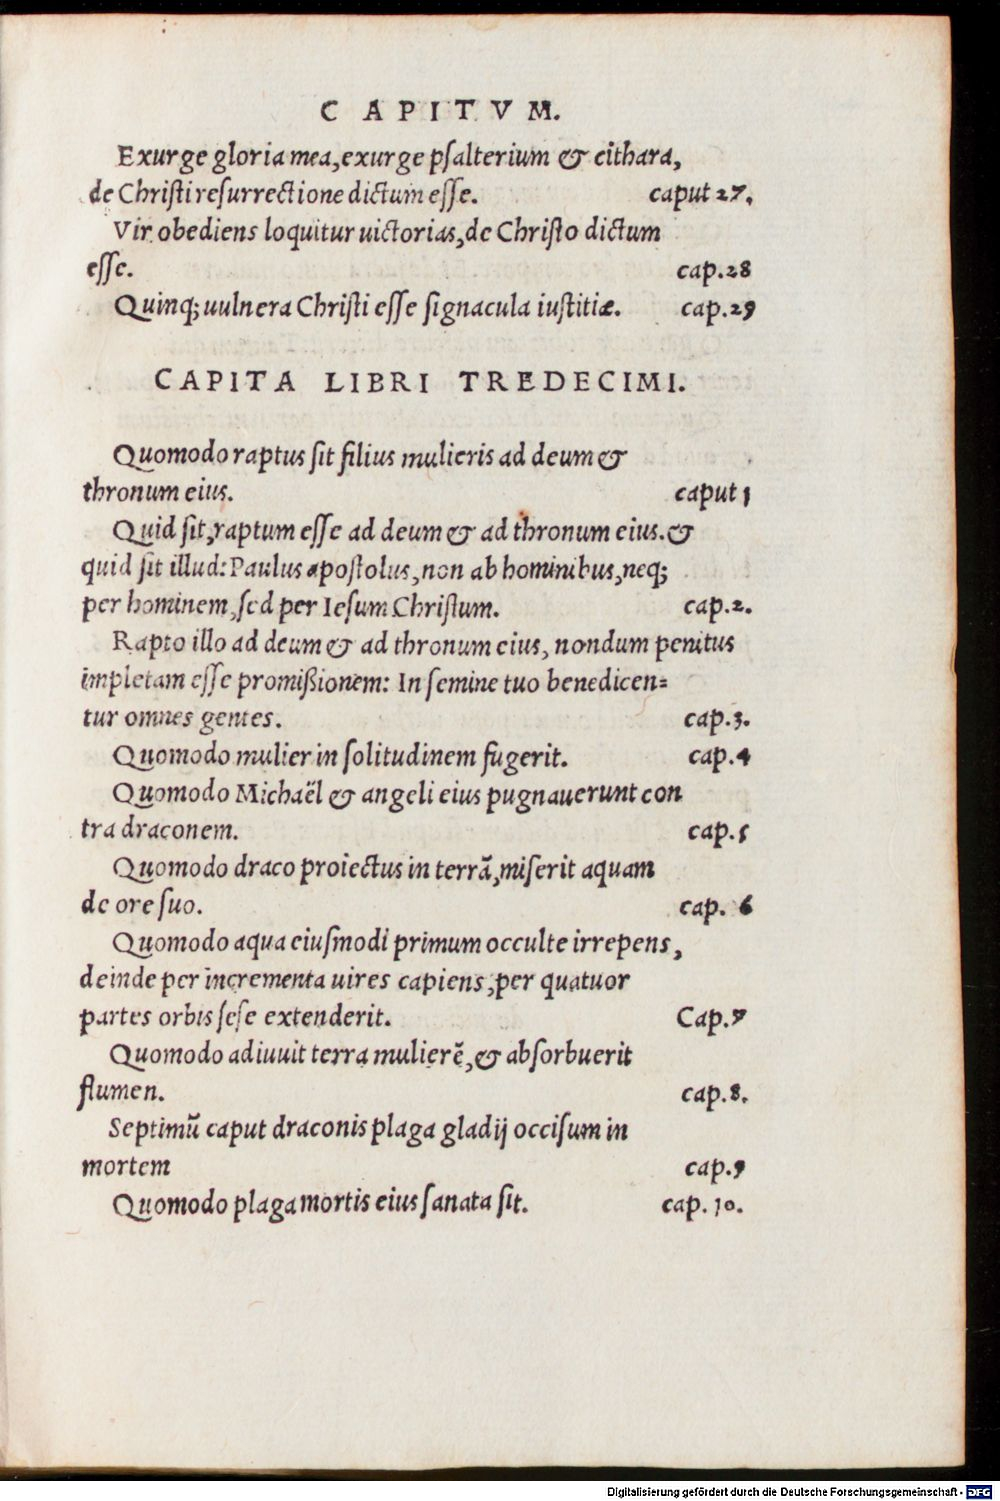 CAPITVM.
Exurge gloria mea, exurge pſalterium & cithara,
de Chriſti reſurrectione dictum eſſe. caput 27.
Vir obediens loquitur uictorias, de Chriſto dictum
eſſe. cap.28
Quinq; uulnera Chriſti eſſe ſignacula iuſtitiæ. cap.29
CAPITA LIBRI TREDECIMI.
Quomodo raptus ſit filius mulieris ad deum &
thronum eius. caput 1
Quid ſit, raptum eſſe ad deum & ad thronum eius. &
quid ſit illud: Paulus apoſtolus, non ab hominibus, neq;
per hominem, ſed per Ieſum Chriſtum. cap.2.
Rapto illo ad deum & ad thronum eius, nondum penitus
impletam eſſe promißionem: In ſemine tuo benedicen=
tur omnes gentes. cap.3.
Quomodo mulier in ſolitudinem fugerit. cap.4
Quomodo Michaël & angeli eius pugnauerunt con
tra draconem. cap.5
Quomodo draco proiectus in terrã, miſerit aquam
de ore ſuo. cap. 6
Quomodo aqua eiuſmodi primum occulte irrepens,
deinde per incrementa uires capiens, per quatuor
partes orbis ſeſe extenderit. Cap.7
Quomodo adiuuit terra mulierẽ, & abſorbuerit
flumen. cap.8.
Septimũ caput draconis plaga gladij occiſum in
mortem cap.9
Quomodo plaga mortis eius ſanata ſit. cap. 10.
Digitalisierung gefördert durch die Deutsche Forschungsgemeinschaft - DFG